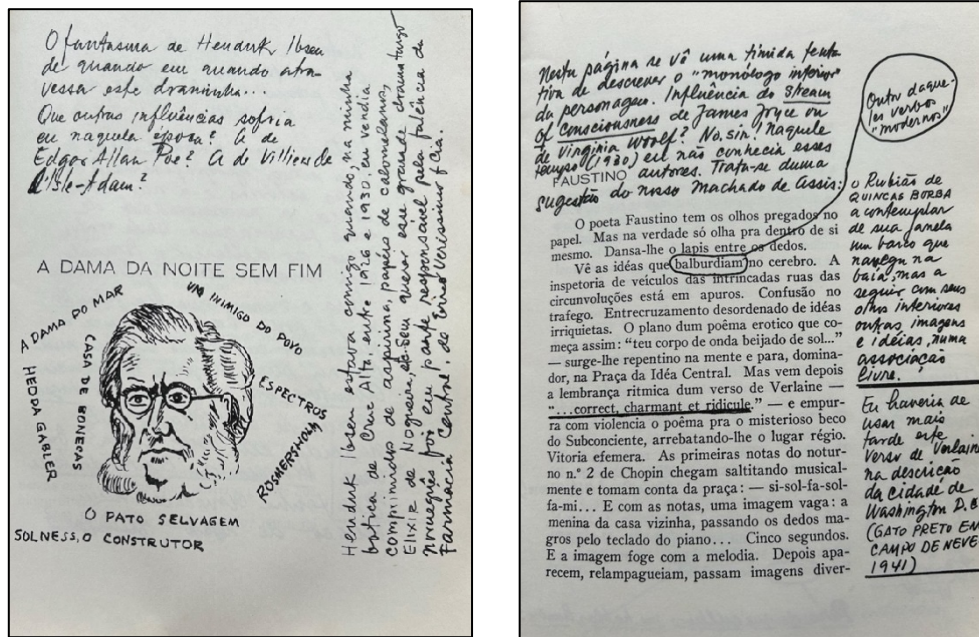 O fantasma de Hendrik Ibsen
de quando em quando atra-
vessa este draminha...
Que outras influências sofria
eu naquela época? A de
Edgar Allan Poe? A de Villiers de
l'Isle-Adam?
A DAMA DA NOITE SEM FIM
A DAMA DO MAR
UM INIMIGO DO POVO
CASA DE BONECAS
HEDDA GABLER
ESPECTROS
ROSMERSHOLM
O PATO SELVAGEM
SOLNESS, O CONSTRUTOR
Hendrik Ibsen estava comigo quando, na minha
botica de Cruz Alta, entre 1926 e 1930, eu vendia
comprimidos de aspirina, papéis de calomelanos,
Elixir de Nogueira, e sem querer esse grande dramaturgo
norueguês foi em parte responsável pela falência da
Farmácia Central, de Erico Verissimo & Cia.
Nesta página se vê uma tímida tenta-
tiva de descrever o "monólogo interior"
da personagem. Influência do stream
of consciousness de James Joyce ou
de Virginia Woolf? No, sir! Naquele
tempo (1930) eu não conhecia esses
autores. Trata-se duma
FAUSTINO
sugestão do nosso Machado de Assis:
Outro daque-
les verbos
"modernos"
o Rubião de
QUINCAS BORBA
a contemplar
de sua janela
um barco que
navega na
baía, mas a
seguir com seus
olhos interiores
outras imagens
e idéias, numa
associação
livre.
O poeta Faustino tem os olhos pregados no
papel. Mas na verdade só olha pra dentro de si
mesmo. Dansa-lhe o lapis entre os dedos.
Vê as idéas que balburdiam no cerebro. A
inspetoria de veículos das intrincadas ruas das
circunvoluções está em apuros. Confusão no
trafego. Entrecruzamento desordenado de idéas
irriquietas. O plano dum poêma erotico que co-
meça assim: "teu corpo de onda beijado de sol..."
— surge-lhe repentino na mente e para, domina-
dor, na Praça da Idéa Central. Mas vem depois
a lembrança ritmica dum verso de Verlaine —
"...correct, charmant et ridicule." — e empur-
ra com violencia o poêma pra o misterioso beco
do Subconciente, arrebatando-lhe o lugar régio.
Vitoria efemera. As primeiras notas do notur-
no n.º 2 de Chopin chegam saltitando musical-
mente e tomam conta da praça: — si-sol-fa-sol-
fa-mi... E com as notas, uma imagem vaga: a
menina da casa vizinha, passando os dedos ma-
gros pelo teclado do piano... Cinco segundos.
E a imagem foge com a melodia. Depois apa-
recem, relampagueiam, passam imagens diver-
Eu haveria de
usar mais
tarde este
verso de Verlaine
na descrição
da cidade de
Washington D.C.
(GATO PRETO EM
CAMPO DE NEVE
1941)